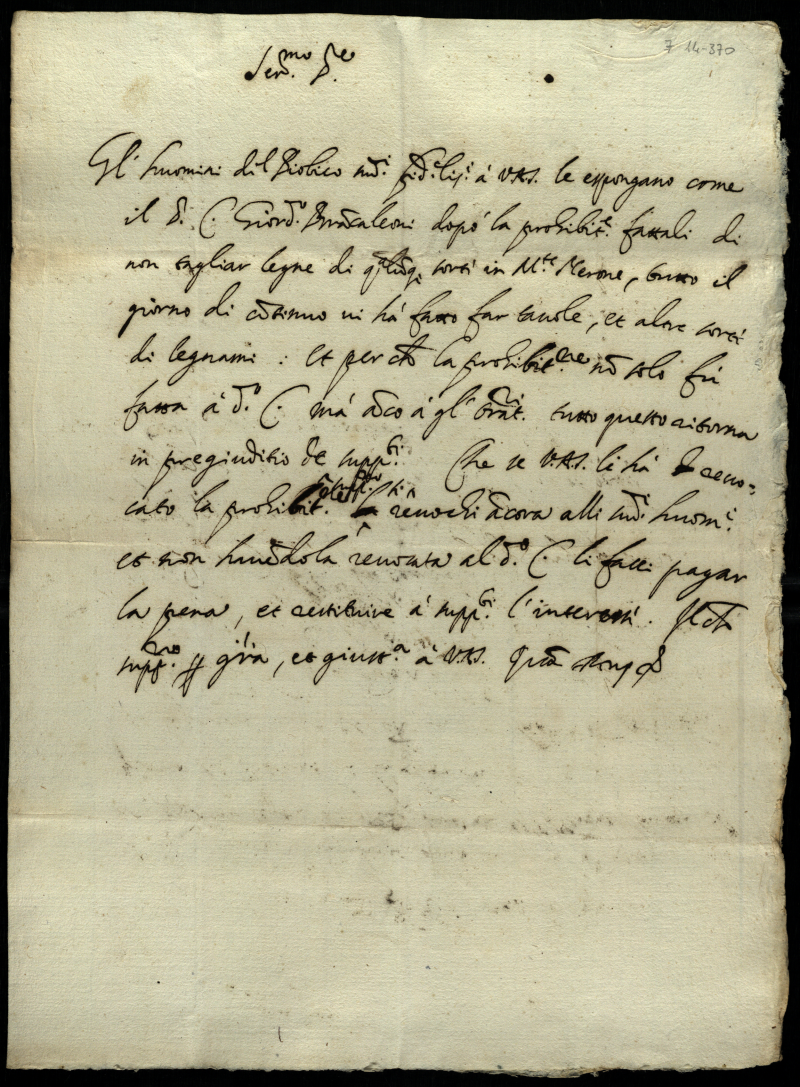 7 14-370
Ser.mo S.re
Gl' huomini dil Piobico sud.i fid.mi à V.A.S. le espongano come
il S. C. Giord.o Brãcaleoni dopò la prohibit.e fattali di
non tagliar legne di q.lũq. sorti in M.te Nerone, tutto il
giorno di cõtinuo ui hà fatto far tauole, et altre sorti
di legnami: et per chè la prohibit.ne nõ solo fù
fatta à d.o C. mà ãco à gl' Orat.ri tutto questo ritorna
in pregiuditio de supp.ti Che se V.A.S. li hà reuo-
cato la prohibit. reuochi ãcora alli sud.i huom.i
et non hauẽdola reuocata al d.o C. li facci pagar
la pena, et restituire à supp.ti l'interessi. Il chè
supp.no p gr̃a, et giust.a à V.A.S. Quã